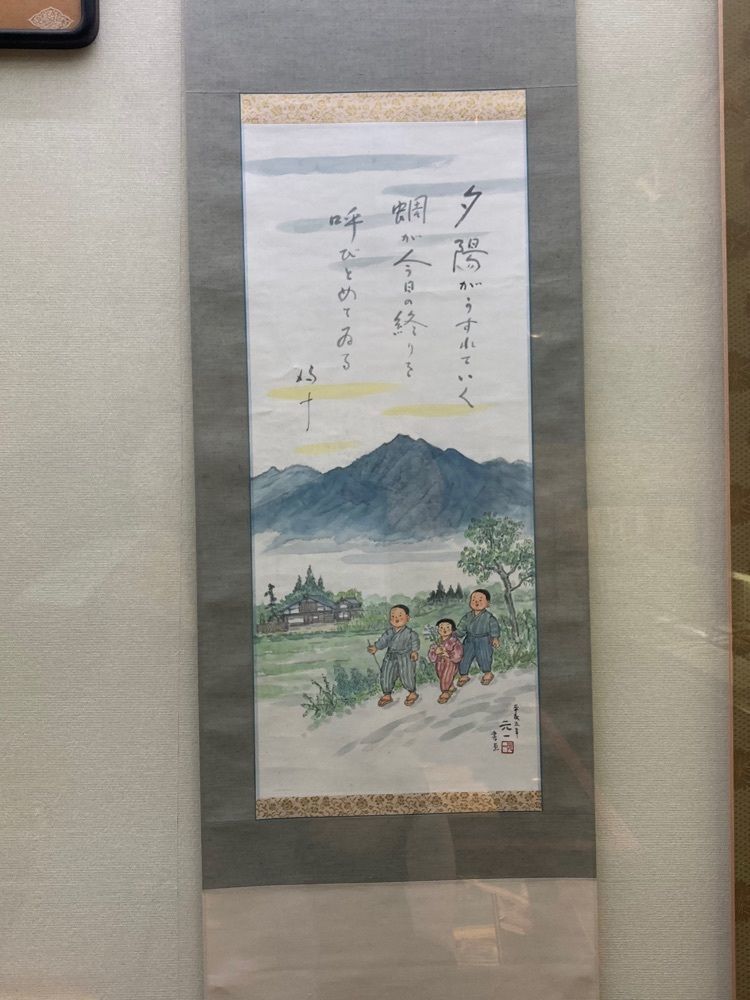 夕陽がうすれていく
蜩が今日の終りを
呼びとめてゐる
鳩十
元一